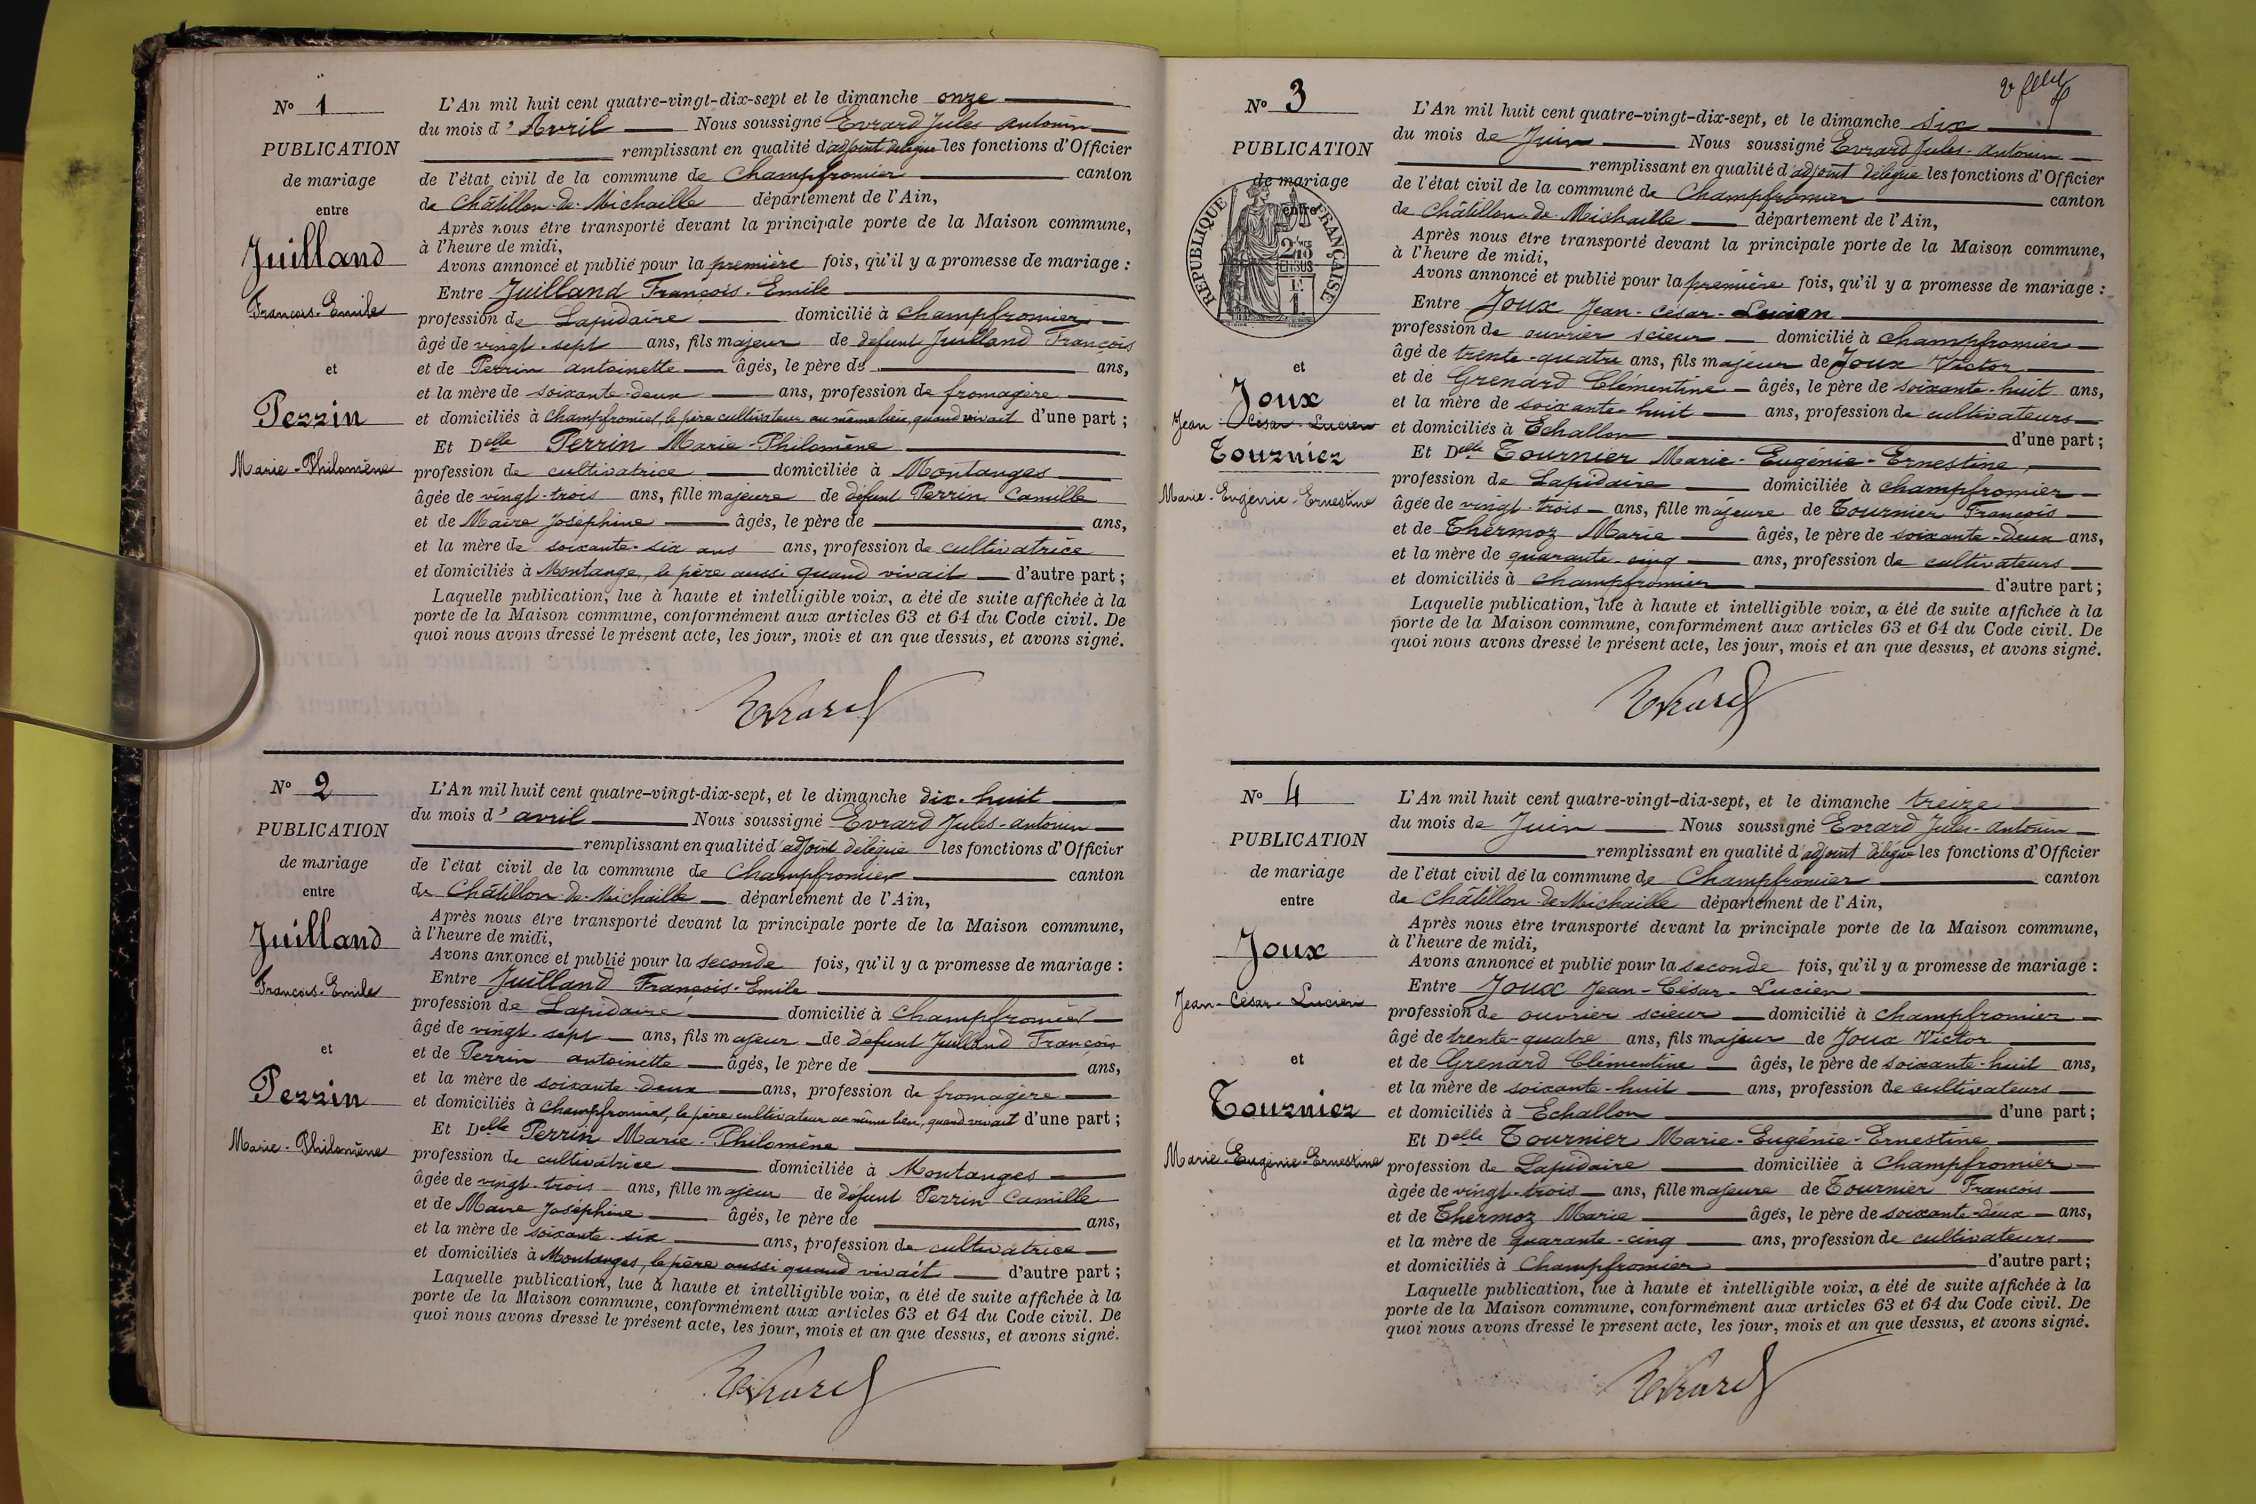 N° 1
PUBLICATION
de mariage
entre
Juilland
François-Emile
et
Perrin
Marie-Philomène
L'An mil huit cent quatre-vingt-dix-sept et le dimanche onze
du mois d'Avril Nous soussigné Evrard Jules antonin
remplissant en qualité d'adjoint délégué les fonctions d'Officier
de l'état civil de la commune de Champfromier canton
de Châtillon-de-Michaille département de l'Ain,
Après nous être transporté devant la principale porte de la Maison commune,
à l'heure de midi,
Avons annoncé et publié pour la première fois, qu'il y a promesse de mariage :
Entre Juilland François-Emile
profession de Lapidaire domicilié à Champfromier
âgé de vingt-sept ans, fils majeur de défunt Juilland François
et de Perrin antoinette âgés, le père de ans,
et la mère de soixante-deux ans, profession de fromagère
et domiciliés à Champfromier, le père cultivateur au même lieu, quand vivait d'une part ;
Et Delle Perrin Marie-Philomène
profession de cultivatrice domiciliée à Montanges
âgée de vingt-trois ans, fille majeure de défunt Perrin Camille
et de Maire Joséphine âgés, le père de ans,
et la mère de soixante-six ans ans, profession de cultivatrice
et domiciliés à Montange, le père aussi quand vivait d'autre part ;
Laquelle publication, lue à haute et intelligible voix, a été de suite affichée à la
porte de la Maison commune, conformément aux articles 63 et 64 du Code civil. De
quoi nous avons dressé le présent acte, les jour, mois et an que dessus, et avons signé.
Evrard
N° 2
PUBLICATION
de mariage
entre
Juilland
François-Emile
et
Perrin
Marie-Philomène
L'An mil huit cent quatre-vingt-dix-sept, et le dimanche dix-huit
du mois d'avril Nous soussigné Evrard Jules-antonin
remplissant en qualité d'adjoint délégué les fonctions d'Officier
de l'état civil de la commune de Champfromier canton
de Châtillon-de-Michaille département de l'Ain,
Après nous être transporté devant la principale porte de la Maison commune,
à l'heure de midi,
Avons annoncé et publié pour la seconde fois, qu'il y a promesse de mariage :
Entre Juilland François-Emile
profession de Lapidaire domicilié à Champfromier
âgé de vingt-sept ans, fils majeur de défunt Juilland François
et de Perrin antoinette âgés, le père de ans,
et la mère de soixante-deux ans, profession de fromagère
et domiciliés à Champfromier, le père cultivateur au même lieu, quand vivait d'une part ;
Et Delle Perrin Marie-Philomène
profession de cultivatrice domiciliée à Montanges
âgée de vingt-trois ans, fille majeur de défunt Perrin Camille
et de Maire Joséphine âgés, le père de ans,
et la mère de soixante-six ans, profession de cultivatrice
et domiciliés à Montanges, le père aussi quand vivait d'autre part ;
Laquelle publication, lue à haute et intelligible voix, a été de suite affichée à la
porte de la Maison commune, conformément aux articles 63 et 64 du Code civil. De
quoi nous avons dressé le présent acte, les jour, mois et an que dessus, et avons signé.
Evrard
N° 3
PUBLICATION
de mariage
entre
RÉPUBLIQUE FRANÇAISE
2/10
EN SUS
1F
et
Joux
Jean-César-Lucien
Tournier
Marie-Eugénie-Ernestine
L'An mil huit cent quatre-vingt-dix-sept, et le dimanche six
du mois de Juin Nous soussigné Evrard Jules-antonin
remplissant en qualité d'adjoint délégué les fonctions d'Officier
de l'état civil de la commune de Champfromier canton
de Châtillon-de-Michaille département de l'Ain,
Après nous être transporté devant la principale porte de la Maison commune,
à l'heure de midi,
Avons annoncé et publié pour la première fois, qu'il y a promesse de mariage :
Entre Joux Jean-César-Lucien
profession de ouvrier scieur domicilié à Champfromier
âgé de trente-quatre ans, fils majeur de Joux Victor
et de Grenard Clémentine âgés, le père de soixante-huit ans,
et la mère de soixante-huit ans, profession de cultivateurs
et domiciliés à Echallon d'une part ;
Et Delle Tournier Marie-Eugénie-Ernestine
profession de Lapidaire domiciliée à Champfromier
âgée de vingt-trois ans, fille majeure de Tournier François
et de Thermoz Marie âgés, le père de soixante-deux ans,
et la mère de quarante-cinq ans, profession de cultivateurs
et domiciliés à Champfromier d'autre part ;
Laquelle publication, lue à haute et intelligible voix, a été de suite affichée à la
porte de la Maison commune, conformément aux articles 63 et 64 du Code civil. De
quoi nous avons dressé le présent acte, les jour, mois et an que dessus, et avons signé.
Evrard
N° 4
PUBLICATION
de mariage
entre
Joux
Jean-César-Lucien
et
Tournier
Marie-Eugénie-Ernestine
L'An mil huit cent quatre-vingt-dix-sept, et le dimanche treize
du mois de Juin Nous soussigné Evrard Jules-antonin
remplissant en qualité d'adjoint délégué les fonctions d'Officier
de l'état civil de la commune de Champfromier canton
de Châtillon-de-Michaille département de l'Ain,
Après nous être transporté devant la principale porte de la Maison commune,
à l'heure de midi,
Avons annoncé et publié pour la seconde fois, qu'il y a promesse de mariage :
Entre Joux Jean-César-Lucien
profession de ouvrier scieur domicilié à Champfromier
âgé de trente-quatre ans, fils majeur de Joux Victor
et de Grenard Clémentine âgés, le père de soixante-huit ans,
et la mère de soixante-huit ans, profession de cultivateurs
et domiciliés à Echallon d'une part ;
Et Delle Tournier Marie-Eugénie-Ernestine
profession de Lapidaire domiciliée à Champfromier
âgée de vingt-trois ans, fille majeure de Tournier François
et de Thermoz Marie âgés, le père de soixante-deux ans,
et la mère de quarante-cinq ans, profession de cultivateurs
et domiciliés à Champfromier d'autre part ;
Laquelle publication, lue à haute et intelligible voix, a été de suite affichée à la
porte de la Maison commune, conformément aux articles 63 et 64 du Code civil. De
quoi nous avons dressé le présent acte, les jour, mois et an que dessus, et avons signé.
Evrard